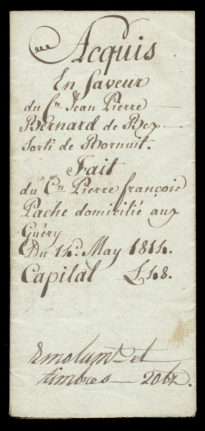 Acquis
En faveur
du Cn. Jean Pierre
Bernard de Bex
sorti de Bornuit.
Fait
du Cn. Pierre françois
Pache domicilié aux
Du 14. May 1814.
Capital £48.
Emolumt. et
timbres — 20